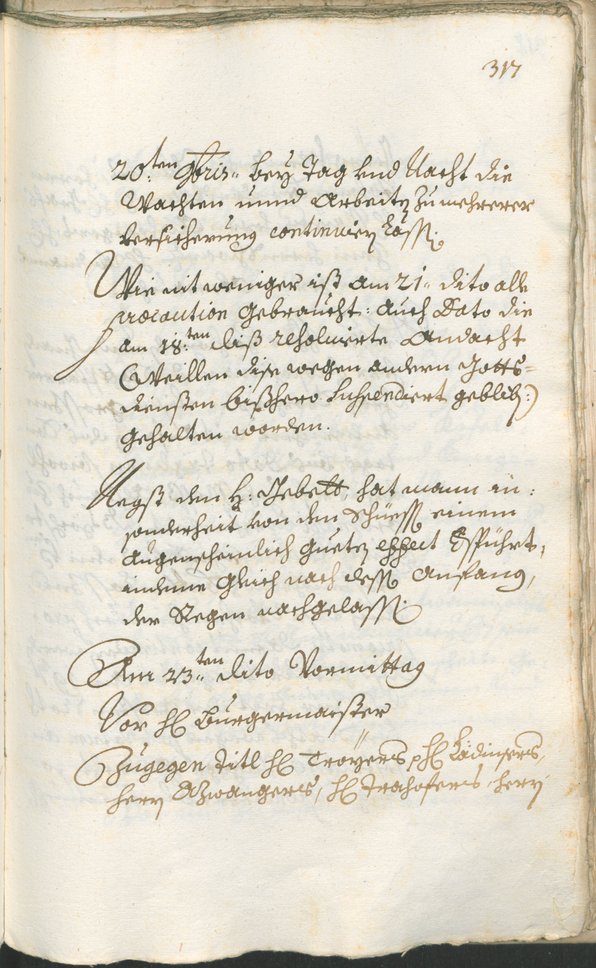 317
20:ten 9bris bey Tag vnd Nacht die
Wachten unnd Arbeiten zu mehrerer
versicherung continuiern lassen.
Wie nit weniger ist am 21: dito alle
praecaution gebraucht: auch Dato die
am 18:ten diss resolvierte Andacht
(Weillen dise wegen andern Gotts=
diensten bisshero suspendiert gebliben:)
gehalten worden.
Negst den H: Gebett, hat mann in:
sonderheit von den Schüessen einem
augenscheinlich gueten effect gspührt,
indeme gleich nach dessen Anfang,
der Regen nachgelassen.
Am 23:ten dito Vormittag
Vor H Burgermaister
Zugegen titl H Troyers, H Ladiners,
herrn Azwangers, H Trahofers herrn